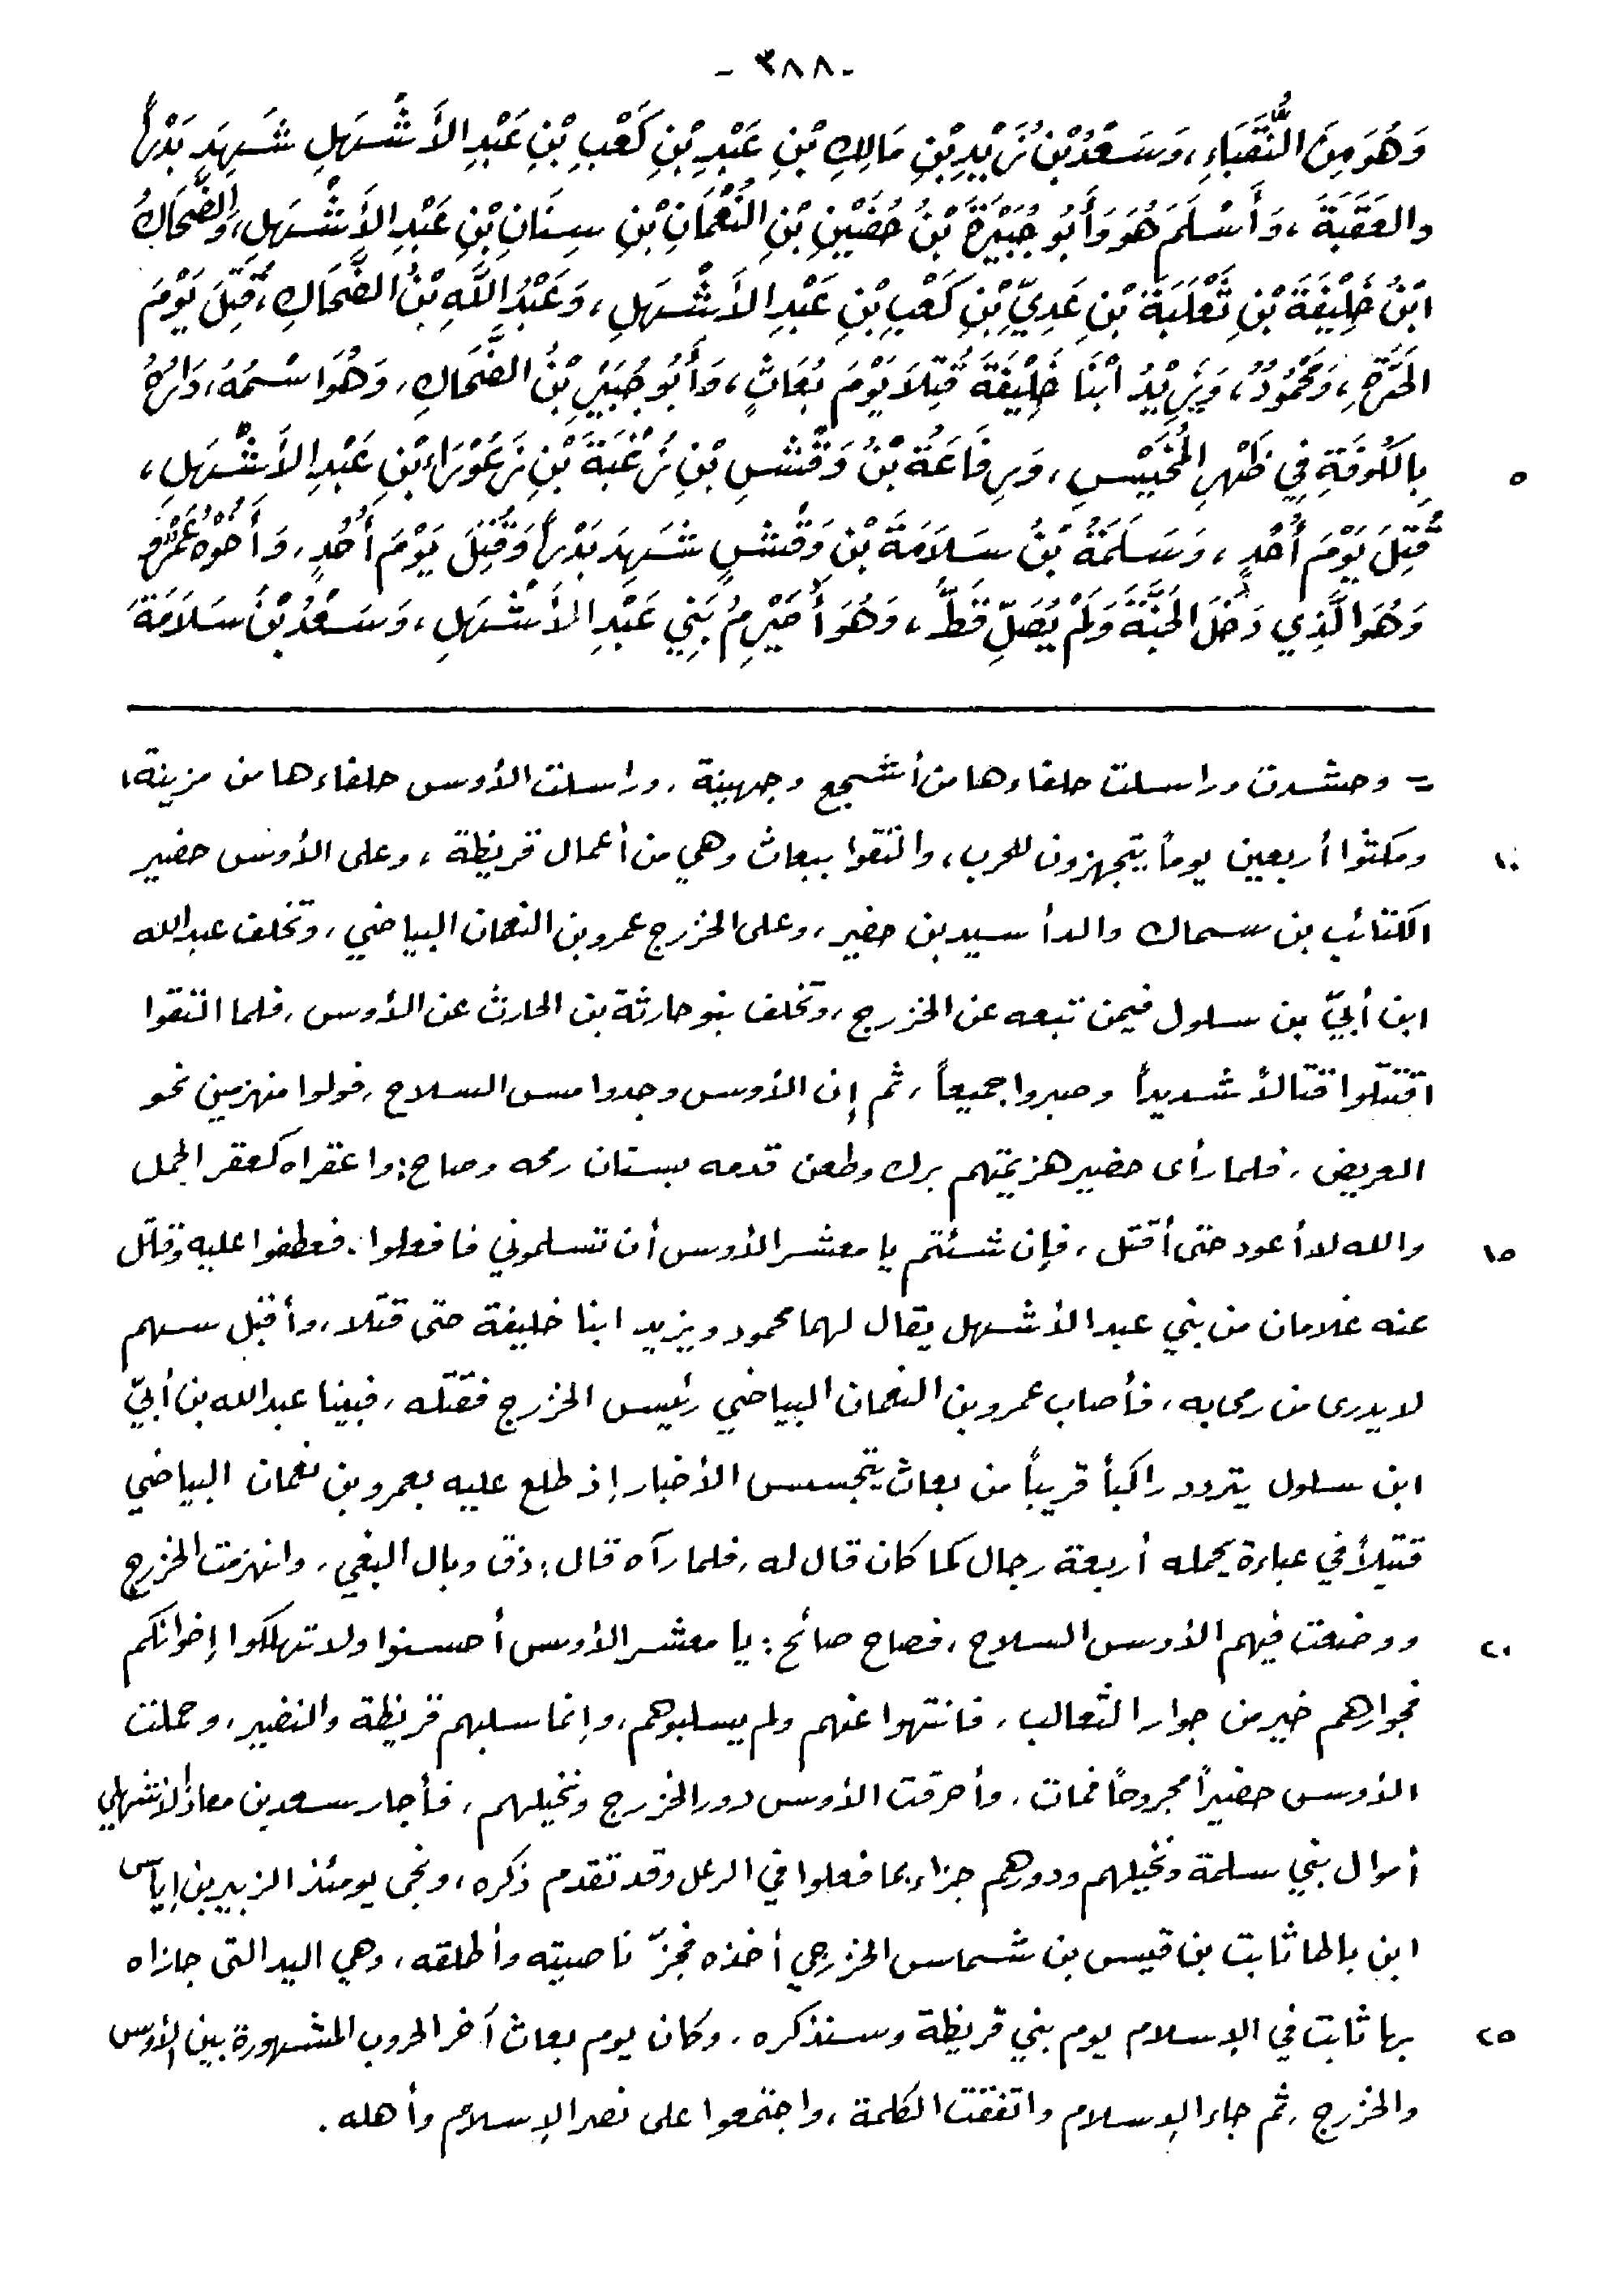 - ٣٨٨ -
وَهُوَ مِنَ النُّقَبَاءِ، وَسَعْدُ بْنُ زَيْدِ بْنِ مَالِكِ بْنِ عَبْدِ بْنِ كَعْبِ بْنِ عَبْدِ الأَشْهَلِ شَهِدَ بَدْراً
والعَقَبَةَ، وَأَسْلَمَ هُوَ وَأَبُو جُبَيْرَةَ بْنُ حُصَيْنِ بْنِ النُّعْمَانِ بْنِ سِنَانِ بْنِ عَبْدِ الأَشْهَلِ، وَالضَّحَاكُ
ابْنُ خَلِيْفَةَ بْنِ ثَعْلَبَةَ بْنِ عَدِيِّ بْنِ كَعْبِ بْنِ عَبْدِ الأَشْهَلِ، وَعَبْدُ اللَّهِ بْنُ الضَّحَاكِ، قُتِلَ يَوْمَ
الحَرَّةِ، وَمَحْمُودُ، وَيَزِيْدُ ابْنَا خَلِيْفَةَ قُتِلَا يَوْمَ بُعَاثٍ، وَأَبُو جُبَيْرِ بْنُ الضَّحَاكِ، وَهُوَ اسْمُهُ، دَارُهُ
بِالكُوفَةِ فِي ظَهْرِ المُخَيْسِ، وَرِفَاعَةُ بْنُ وَقْشِ بْنِ زُغْبَةَ بْنِ زَعُوْرَاءِ بْنِ عَبْدِ الأَشْهَلِ، ٥
قُتِلَ يَوْمَ أُحُدٍ، وَسَلَمَةُ بْنُ سَلَامَةَ بْنِ وَقْشٍ شَهِدَ بَدْراً وَقُتِلَ يَوْمَ أُحُدٍ، وَأَخُوْهُ عَمْرٌو
وَهُوَ الَّذِي دَخَلَ الجَنَّةَ وَلَمْ يُصَلِّ قَطُّ، وَهُوَ أُصَيْرِمُ بَنِي عَبْدِ الأَشْهَلِ، وَسَعْدُ بْنُ سَلَامَةَ
= وحشدت وراسلت حلفاءها من أشجع وجهينة، وراسلت الأوس حلفاءها من مزينة،
ومكثوا أربعين يوماً يتجهزون للحرب، والتقوا ببعاث وهي من أعمال قريظة، وعلى الأوس حضير ١٠
الكتائب بن سماك والد أسيد بن حضير، وعلى الخزرج عمرو بن النعمان البياضي، وتخلف عبد الله
ابن أبيّ بن سلول فيمن تبعه عن الخزرج، وتخلف بنو حارثة بن الحارث عن الأوس، فلما التقوا
اقتتلوا قتالاً شديداً وصبروا جميعاً، ثم إن الأوس وجدوا مس السلاح، فولوا منهزمين نحو
العريض، فلما رأى حضير هزيمتهم برك وطعن قدمه بسنان رمحه وصاح: واعقراه كعقر الجمل
والله لا أعود حتى أقتل، فإن شئتم يا معشر الأوس أن تسلموني فافعلوا. فعطفوا عليه وقاتل ١٥
عنه غلامان من بني عبد الأشهل يقال لهما محمود ويزيد ابنا خليفة حتى قتلا، وأقبل سهم
لا يدرى من رمى به، فأصاب عمرو بن النعمان البياضي رئيس الخزرج فقتله، فبينا عبد الله بن أبيّ
ابن سلول يتردد راكباً قريباً من بعاث يتجسس الأخبار إذ طلع عليه بعمرو بن نعمان البياضي
قتيلاً في عباءة يحمله أربعة رجال كما كان قال له، فلما رآه قال: ذق وبال البغي، وانهزمت الخزرج
ووضعت فيهم الأوس السلاح، فصاح صائح: يا معشر الأوس أحسنوا ولا تهلكوا إخوانكم ٢٠
فجوارهم خير من جوار الثعالب، فانتهوا عنهم ولم يسلبوهم، وإنما سلبهم قريظة والنضير، وحملت
الأوس حضيراً مجروحاً فمات، وأحرقت الأوس دور الخزرج ونخيلهم، فأجار سعد بن معاذ الأشهلي
أموال بني سلمة ونخيلهم ودورهم جزاء بما فعلوا في الرعل وقد تقدم ذكره، ونجى يومئذ الزبير بن إياس
ابن باطا ثابت بن قيس بن شماس الخزرجي أخذه فجزّ ناصيته وأطلقه، وهي اليد التي جازاه
بها ثابت في الإسلام يوم بني قريظة وسنذكره، وكان يوم بعاث آخر الحروب المشهورة بين الأوس ٢٥
والخزرج، ثم جاء الإسلام واتفقت الكلمة، واجتمعوا على نصر الإسلام وأهله.